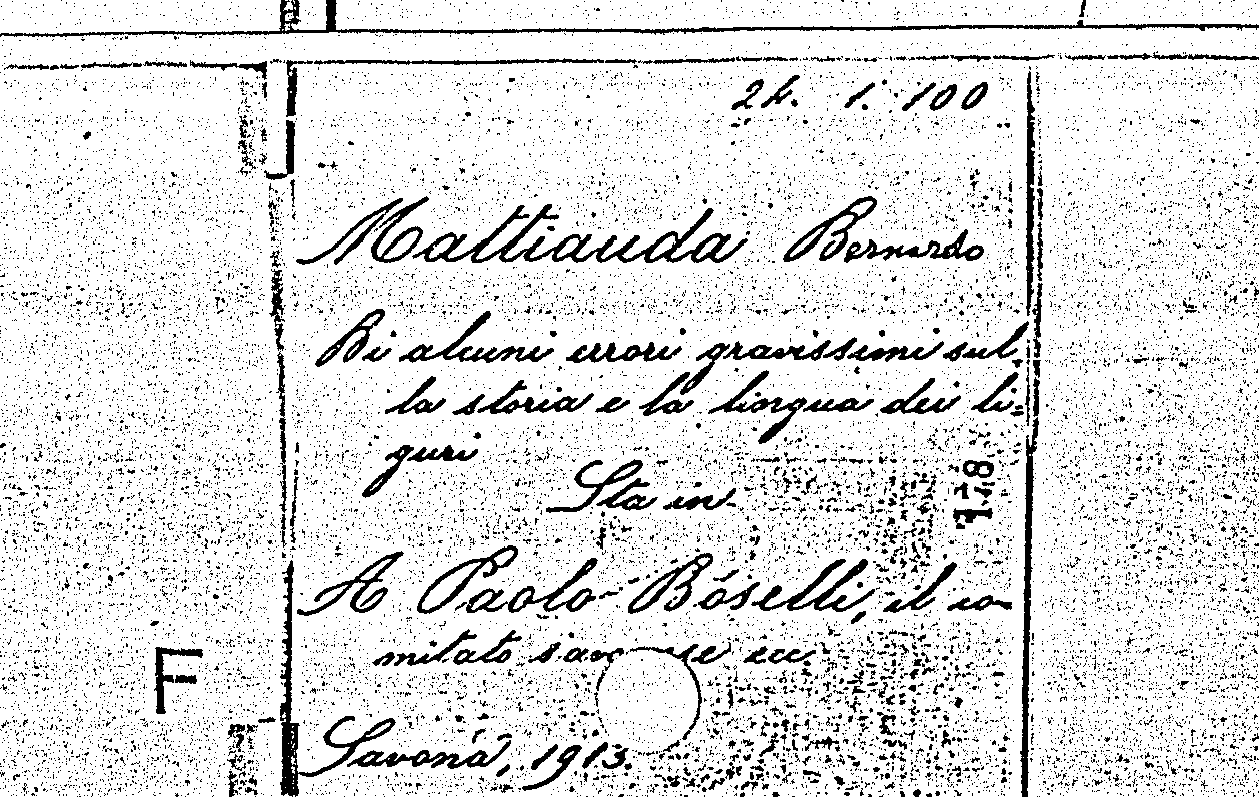 24. 1. 100
Mattiauda Bernardo
Di alcuni errori gravissimi sul
la storia e la lingua dei li=
guri
118
Sta in
A Paolo Boselli, il co-
mitato ecc.
F
Savona, 1913.